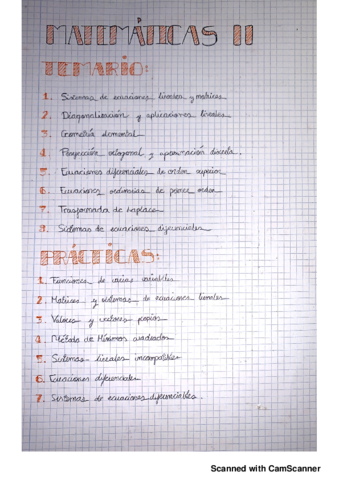 MATEMÁTICAS II
TEMARIO:
1. Sistemas de ecuaciones lineales y matrices
2. Diagonalización y aplicaciones lineales
3. Geometría elemental
4. Proyección octogonal y aproximación discreta.
5. Ecuaciones diferenciales de orden superior
6. Ecuaciones ordinarias de primer orden
7. Trasformada de Laplace
8. Sistemas de ecuaciones diferenciales
PRÁCTICAS:
1. Funciones de varias variables
2. Matrices y sistemas de ecuaciones lineales
3. Valores y vectores propios
4. Método de Mínimos cuadrados
5. Sistemas lineales incompatibles
6. Ecuaciones diferenciales
7. Sistemas de ecuaciones diferenciables.
Scanned with CamScanner